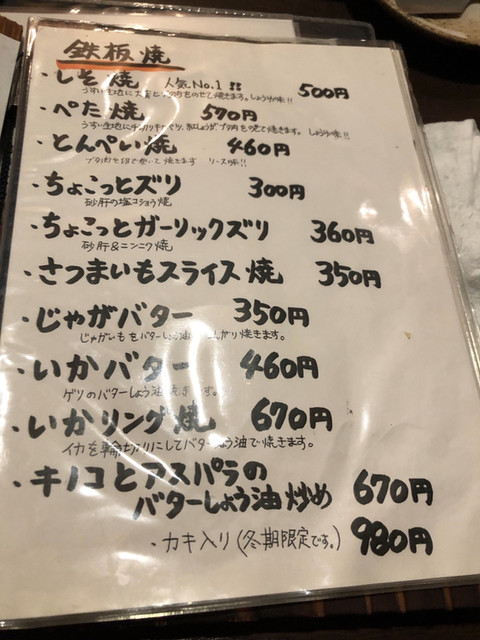 鉄板焼
・しそ焼 人気No.1!! 500円
うすい生地に大葉とをのせて焼きます。しょうゆ味!!
・ぺた焼 570円
うすい生地に 紅しょうが ブタ肉を 焼きます。しょうゆ味!!
・とんぺい焼 460円
ブタ肉を卵で巻いて焼きます ソース味!!
・ちょこっとズリ 300円
砂肝の塩コショウ焼
・ちょこっとガーリックズリ 360円
砂肝&ニンニク焼
・さつまいもスライス焼 350円
・じゃがバター 350円
じゃがいもをバターしょう油 こんがり焼きます。
・いかバター 460円
ゲソのバターしょう油焼きです。
・いかリング焼 670円
イカを輪切りにしてバターしょう油で焼きます。
・キノコとアスパラの
バターしょう油炒め 670円
・カキ入り(冬期限定です。) 980円